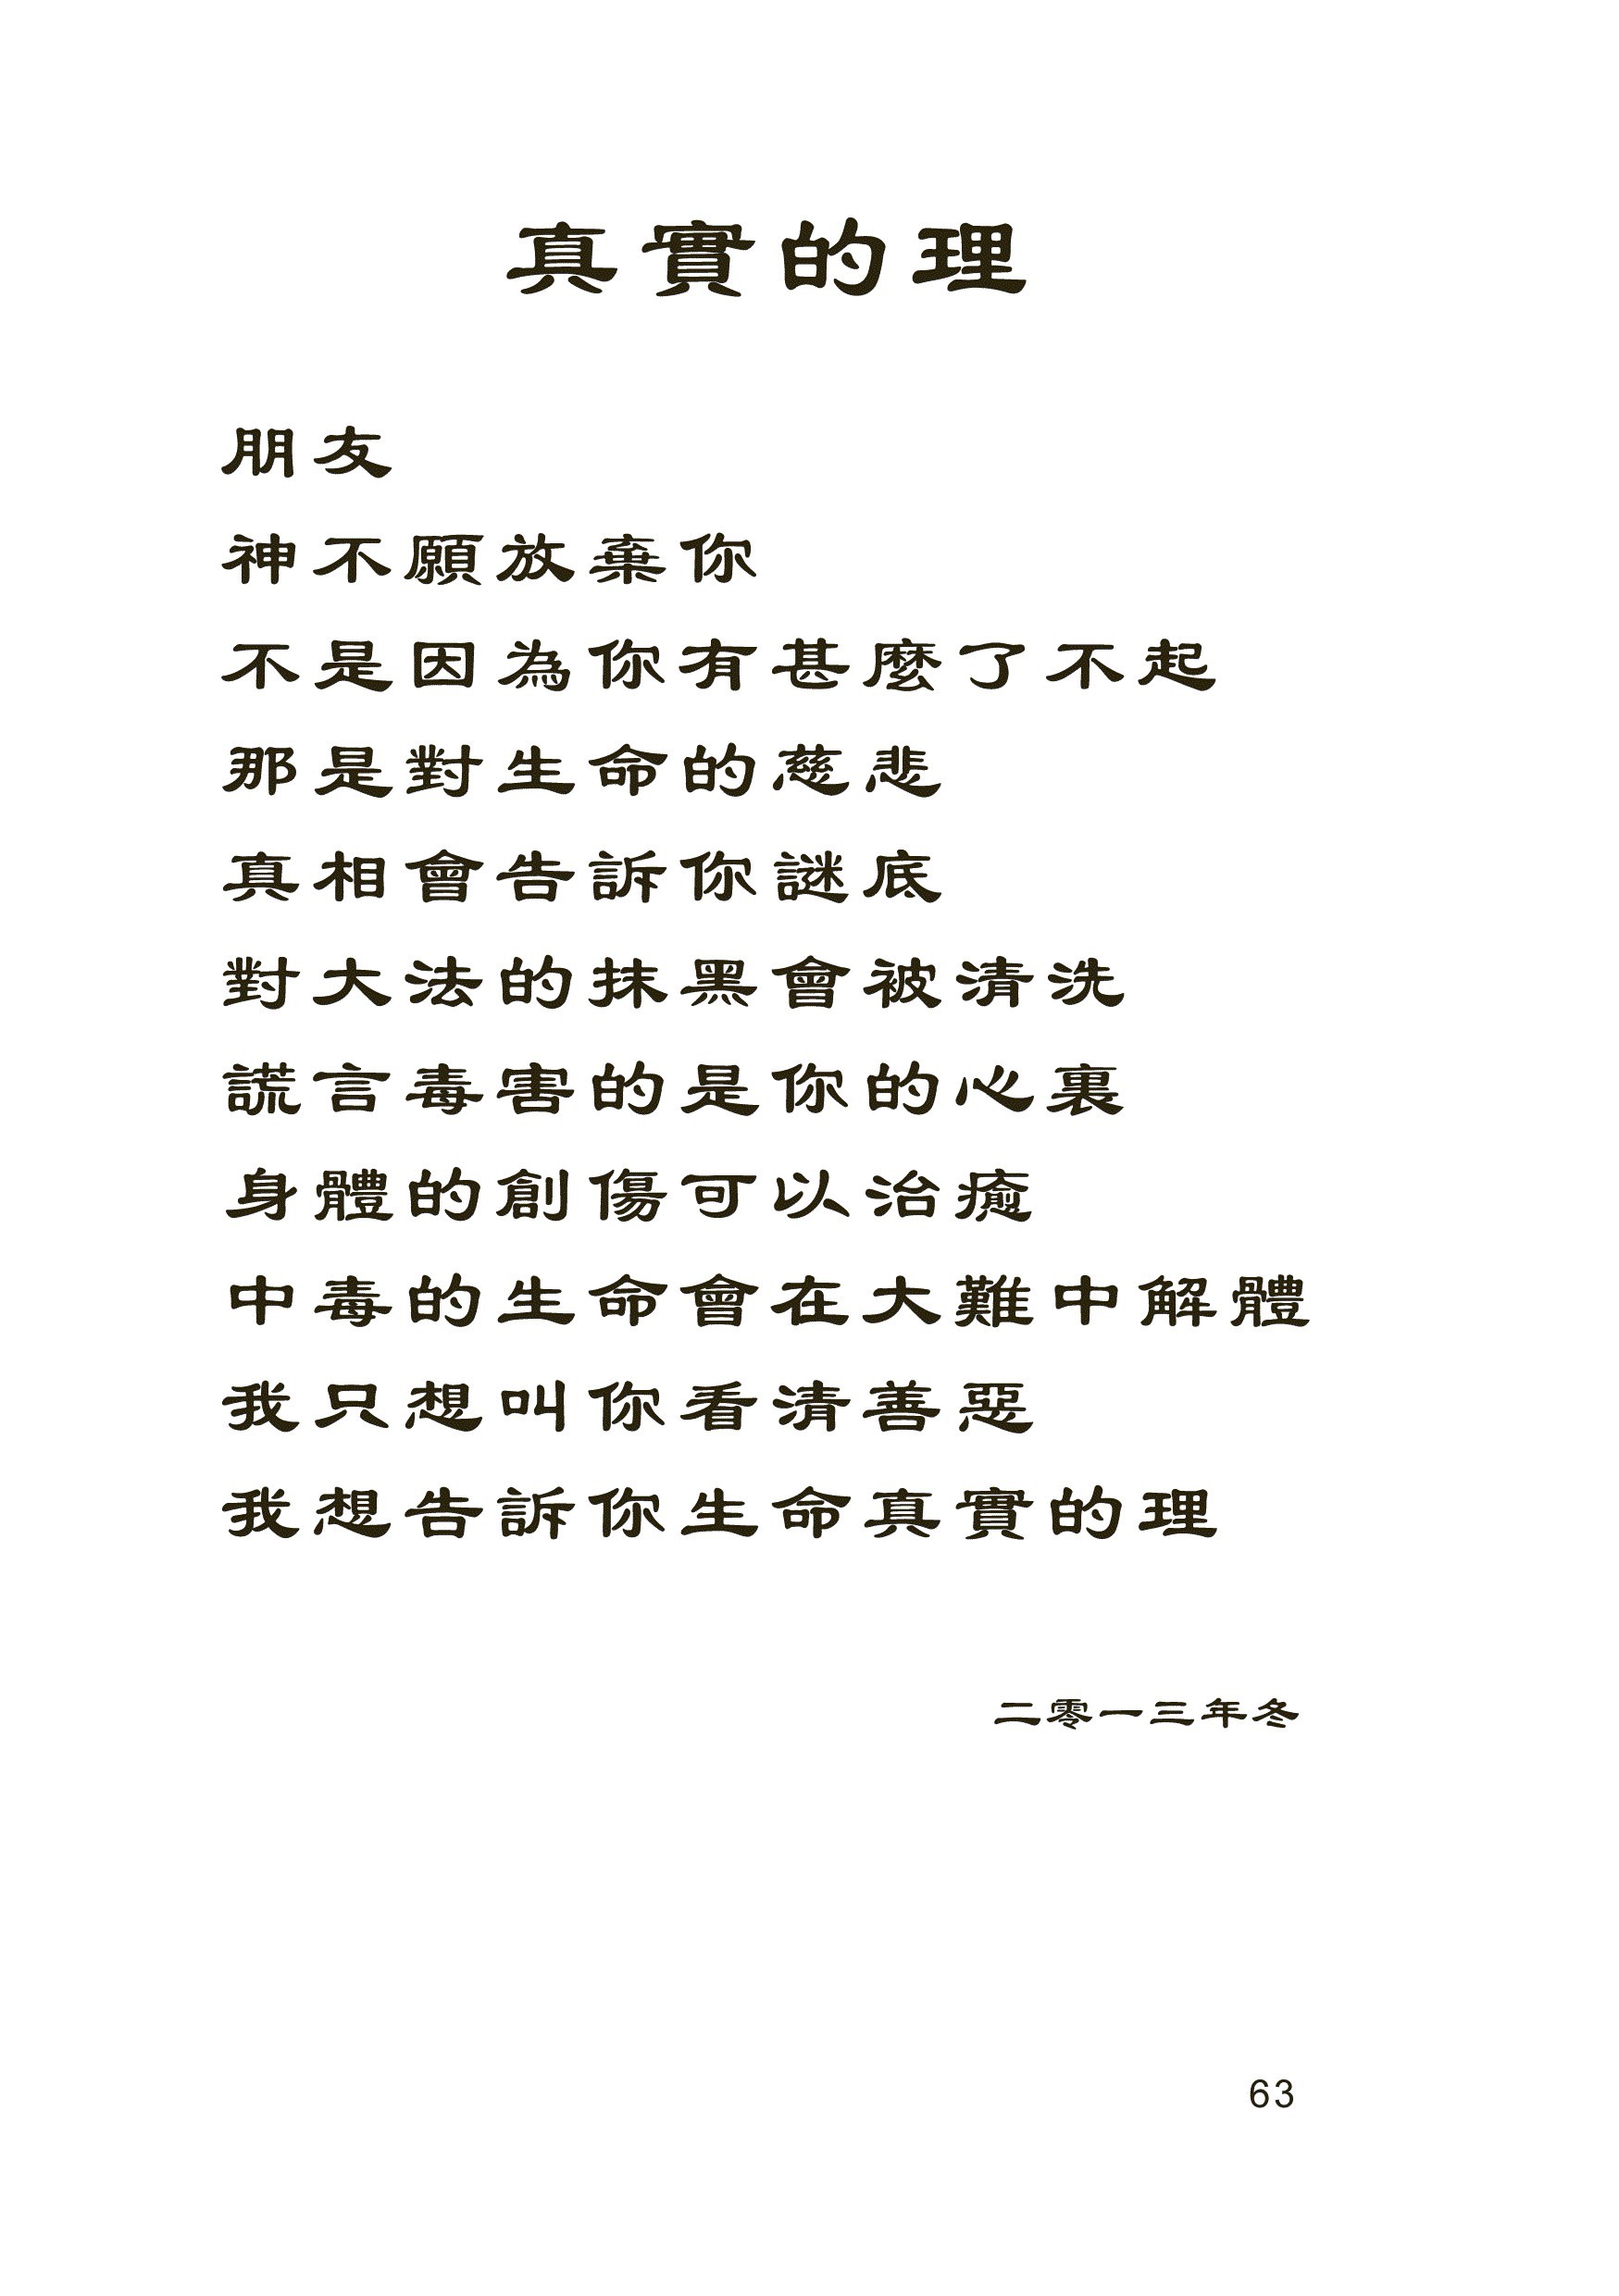 真實的理
朋友
神不願放棄你
不是因為你有甚麼了不起
那是對生命的慈悲
真相會告訴你謎底
對大法的抹黑會被清洗
謊言毒害的是你的心裏
身體的創傷可以治癒
中毒的生命會在大難中解體
我只想叫你看清善惡
我想告訴你生命真實的理
二零一三年冬
63